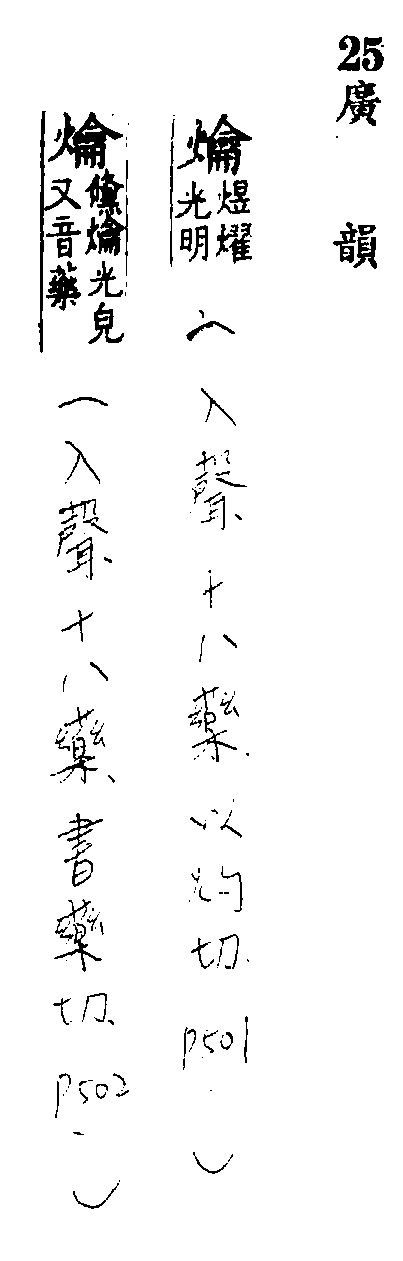 25廣韻
爚煜燿光明（入聲、十八藥、以灼切、P501）
爚儵爚光皃又音藥（入聲、十八藥、書藥切、P502）